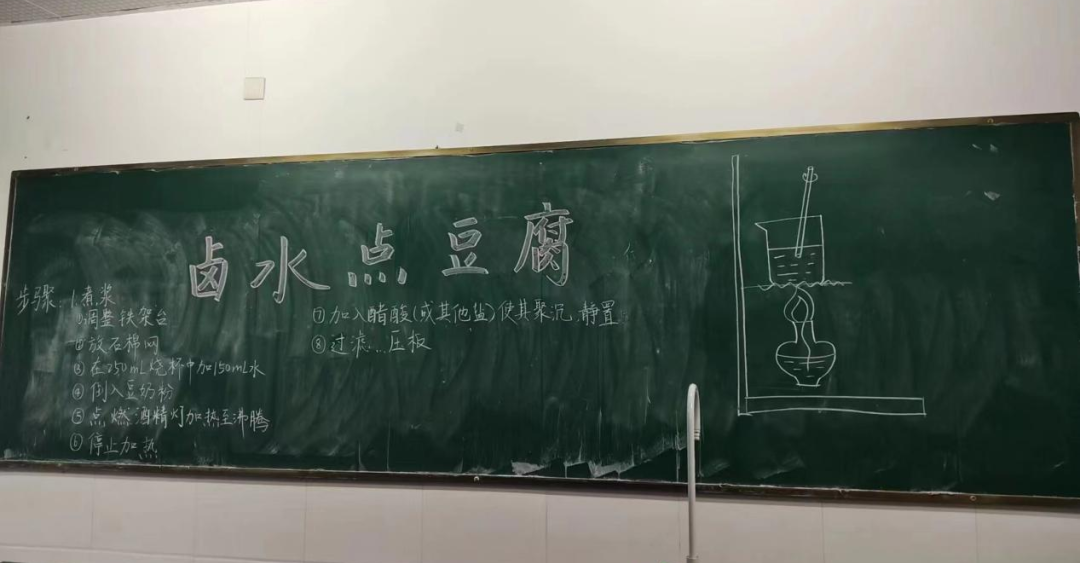 卤水点豆腐
步骤:1.煮浆
①调整铁架台
②放石棉网
③在250mL烧杯中加150mL水
④倒入豆奶粉
⑤点燃酒精灯加热至沸腾
⑥停止加热
⑦加入醋酸(或其他盐)使其聚沉,静置
⑧过滤...压板